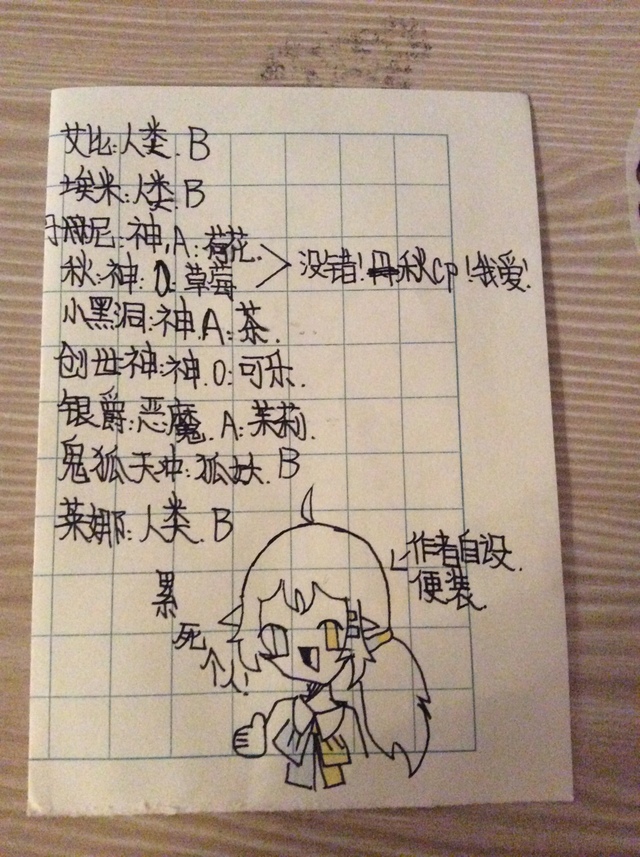 艾比:人类.B
埃米:人类.B
丹尼:神,A:荷花.
秋:神:O:草莓
没错!丹秋cp!我爱!
小黑洞:神.A:茶.
创世神:神.O:可乐.
银爵:恶魔.A:茉莉.
鬼狐天冲:狐妖.B
莱娜:人类.B
作者自设.
便装.
累
死
个人!